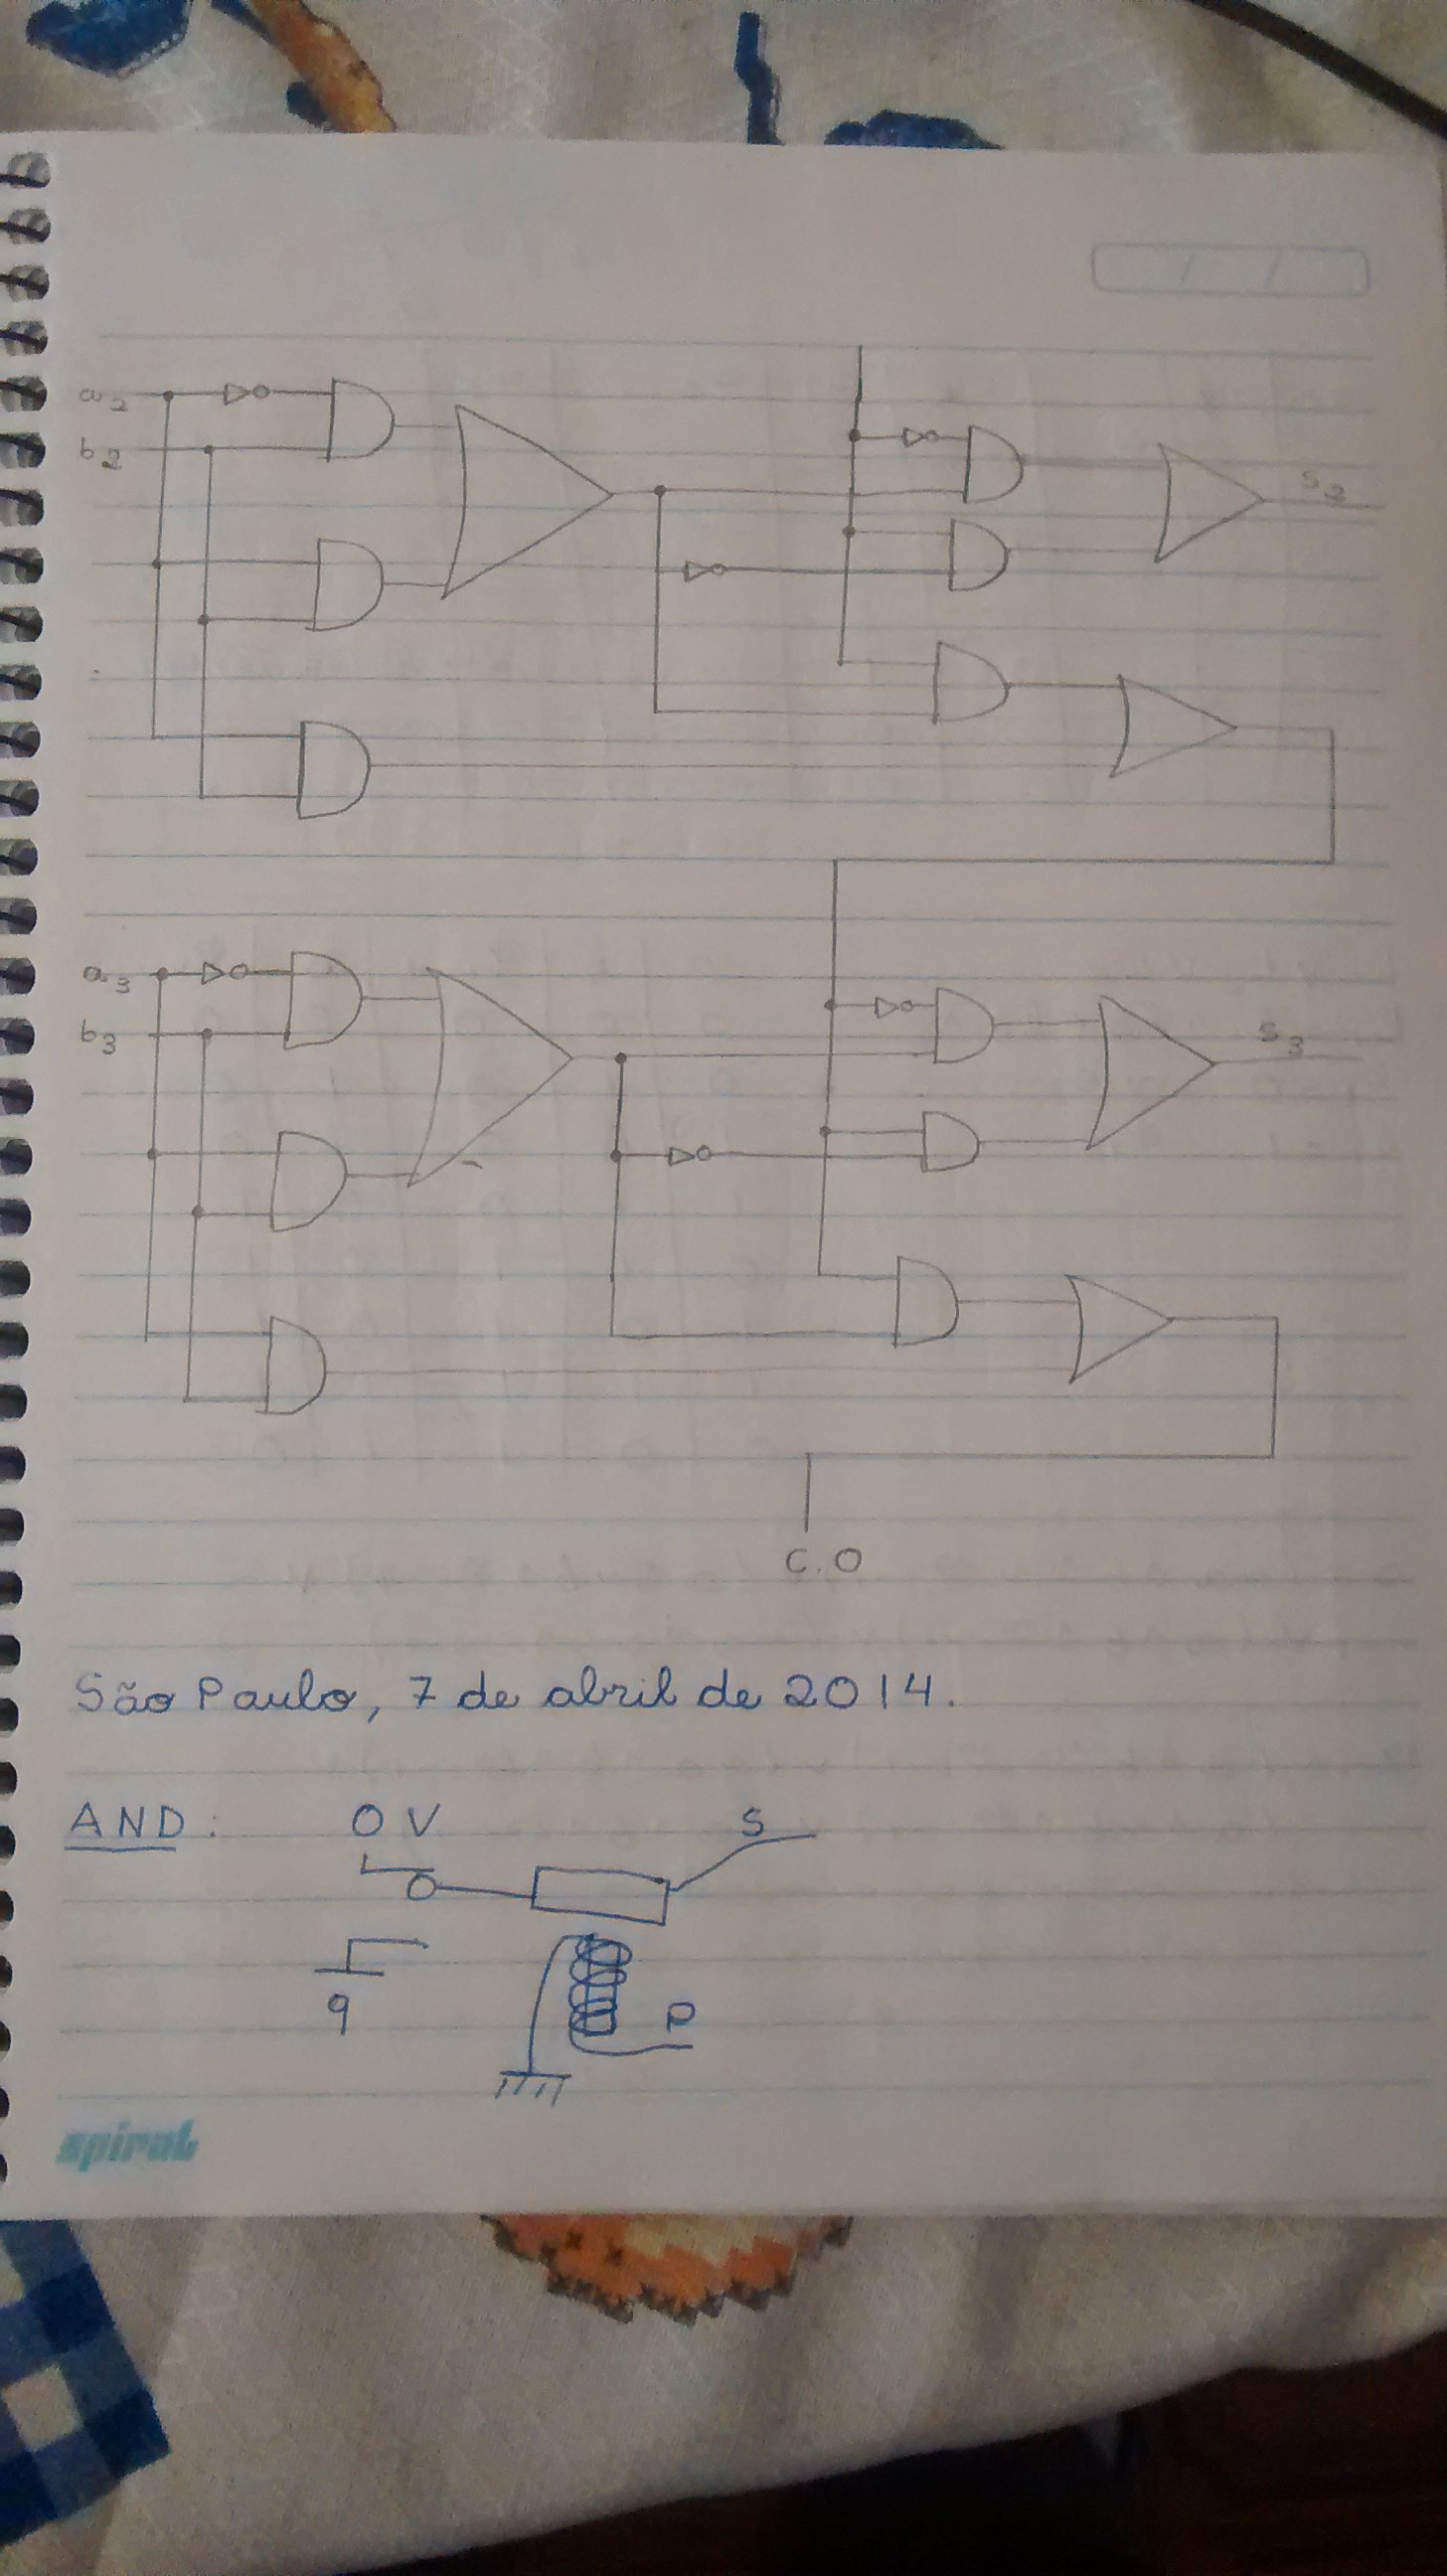 a₂
b₂
s₂
a₃
b₃
s₃
C.O
São Paulo, 7 de abril de 2014.
AND: 0 V s
q p
spiral